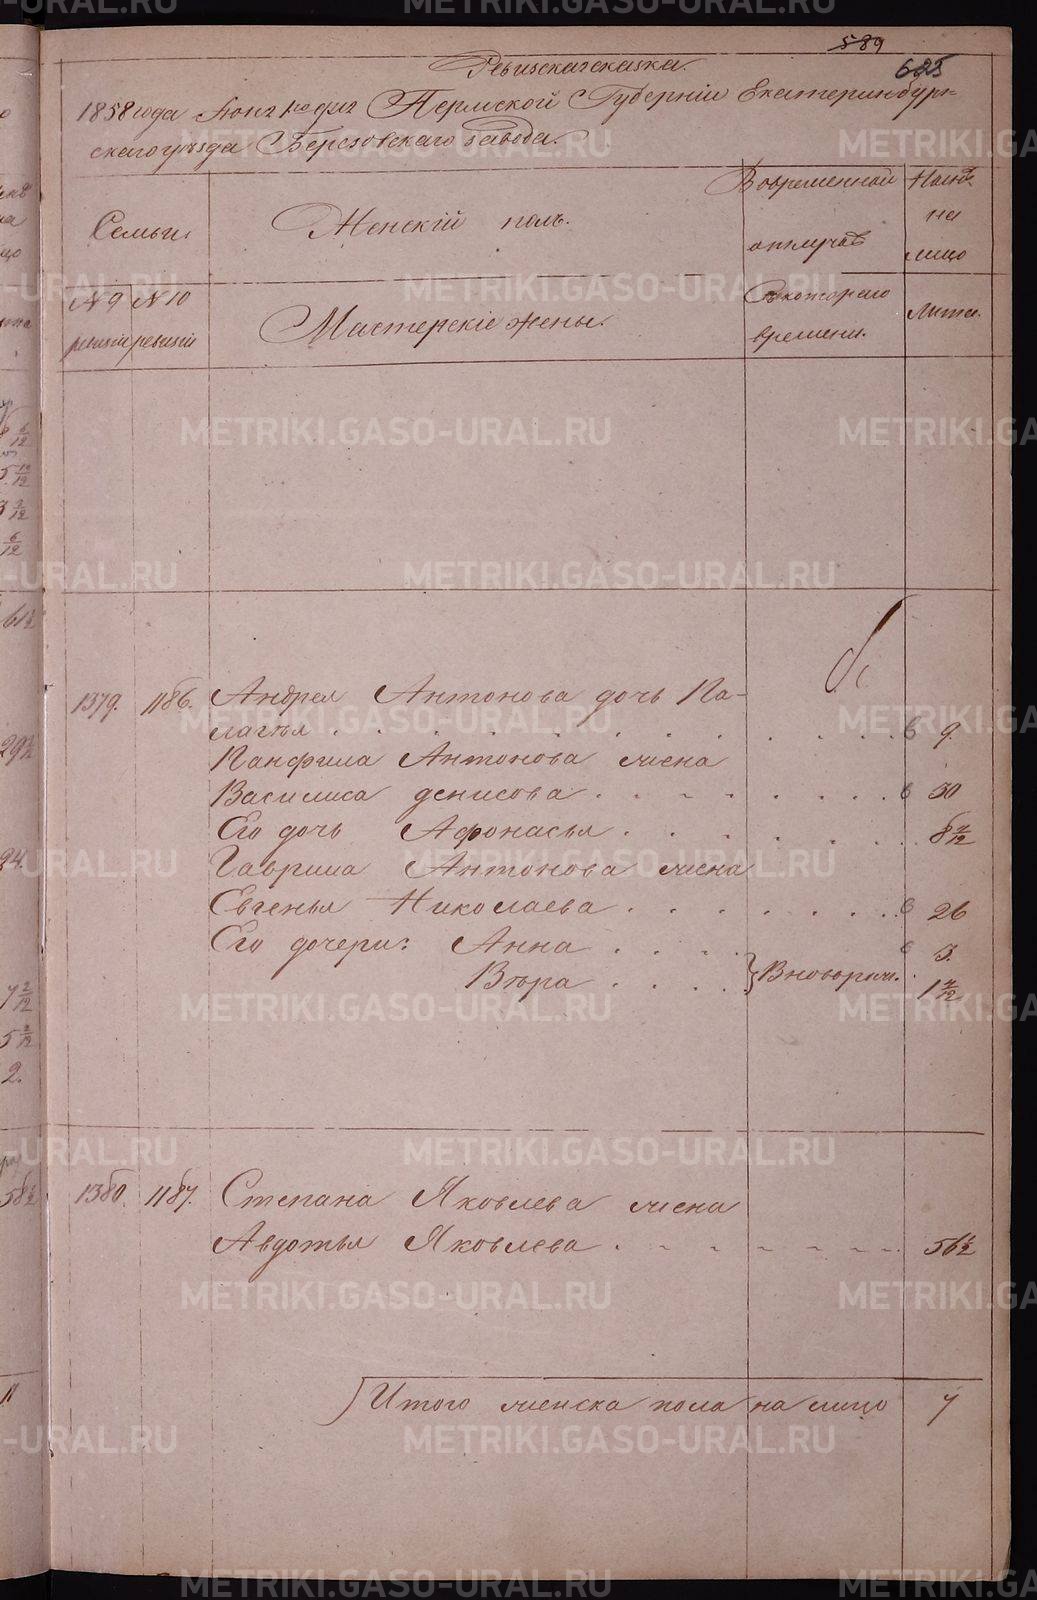 589
625
Ревизская сказка.
1858 года Июня 1го дня Пермской Губернiи Екатеринбург-
скаго уѣзда Березовскаго завода.
Семьи.
Женскiй полъ.
Во временной
отлучкѣ
Налицо
на
лицо
№ 9
ревизiи
№ 10
ревизiи
Мастерскiе жены.
Съ котораго
времени.
Лѣта.
1379. 1186. Андрея Антонова дочь Па-
лагѣя 9.
Панфила Антонова жена
Василиса Денисова 30
Его дочь Афонасья 8 7/12
Гаврила Антонова жена
Евгенья Николаева 26
Его дочери: Анна 3.
Вѣра } Вновьрож. 1 7/12
1380. 1187. Степана Яковлева жена
Авдотья Яковлева 56 1/2
Итого женска пола на лицо 7
METRIKI.GASO-URAL.RU